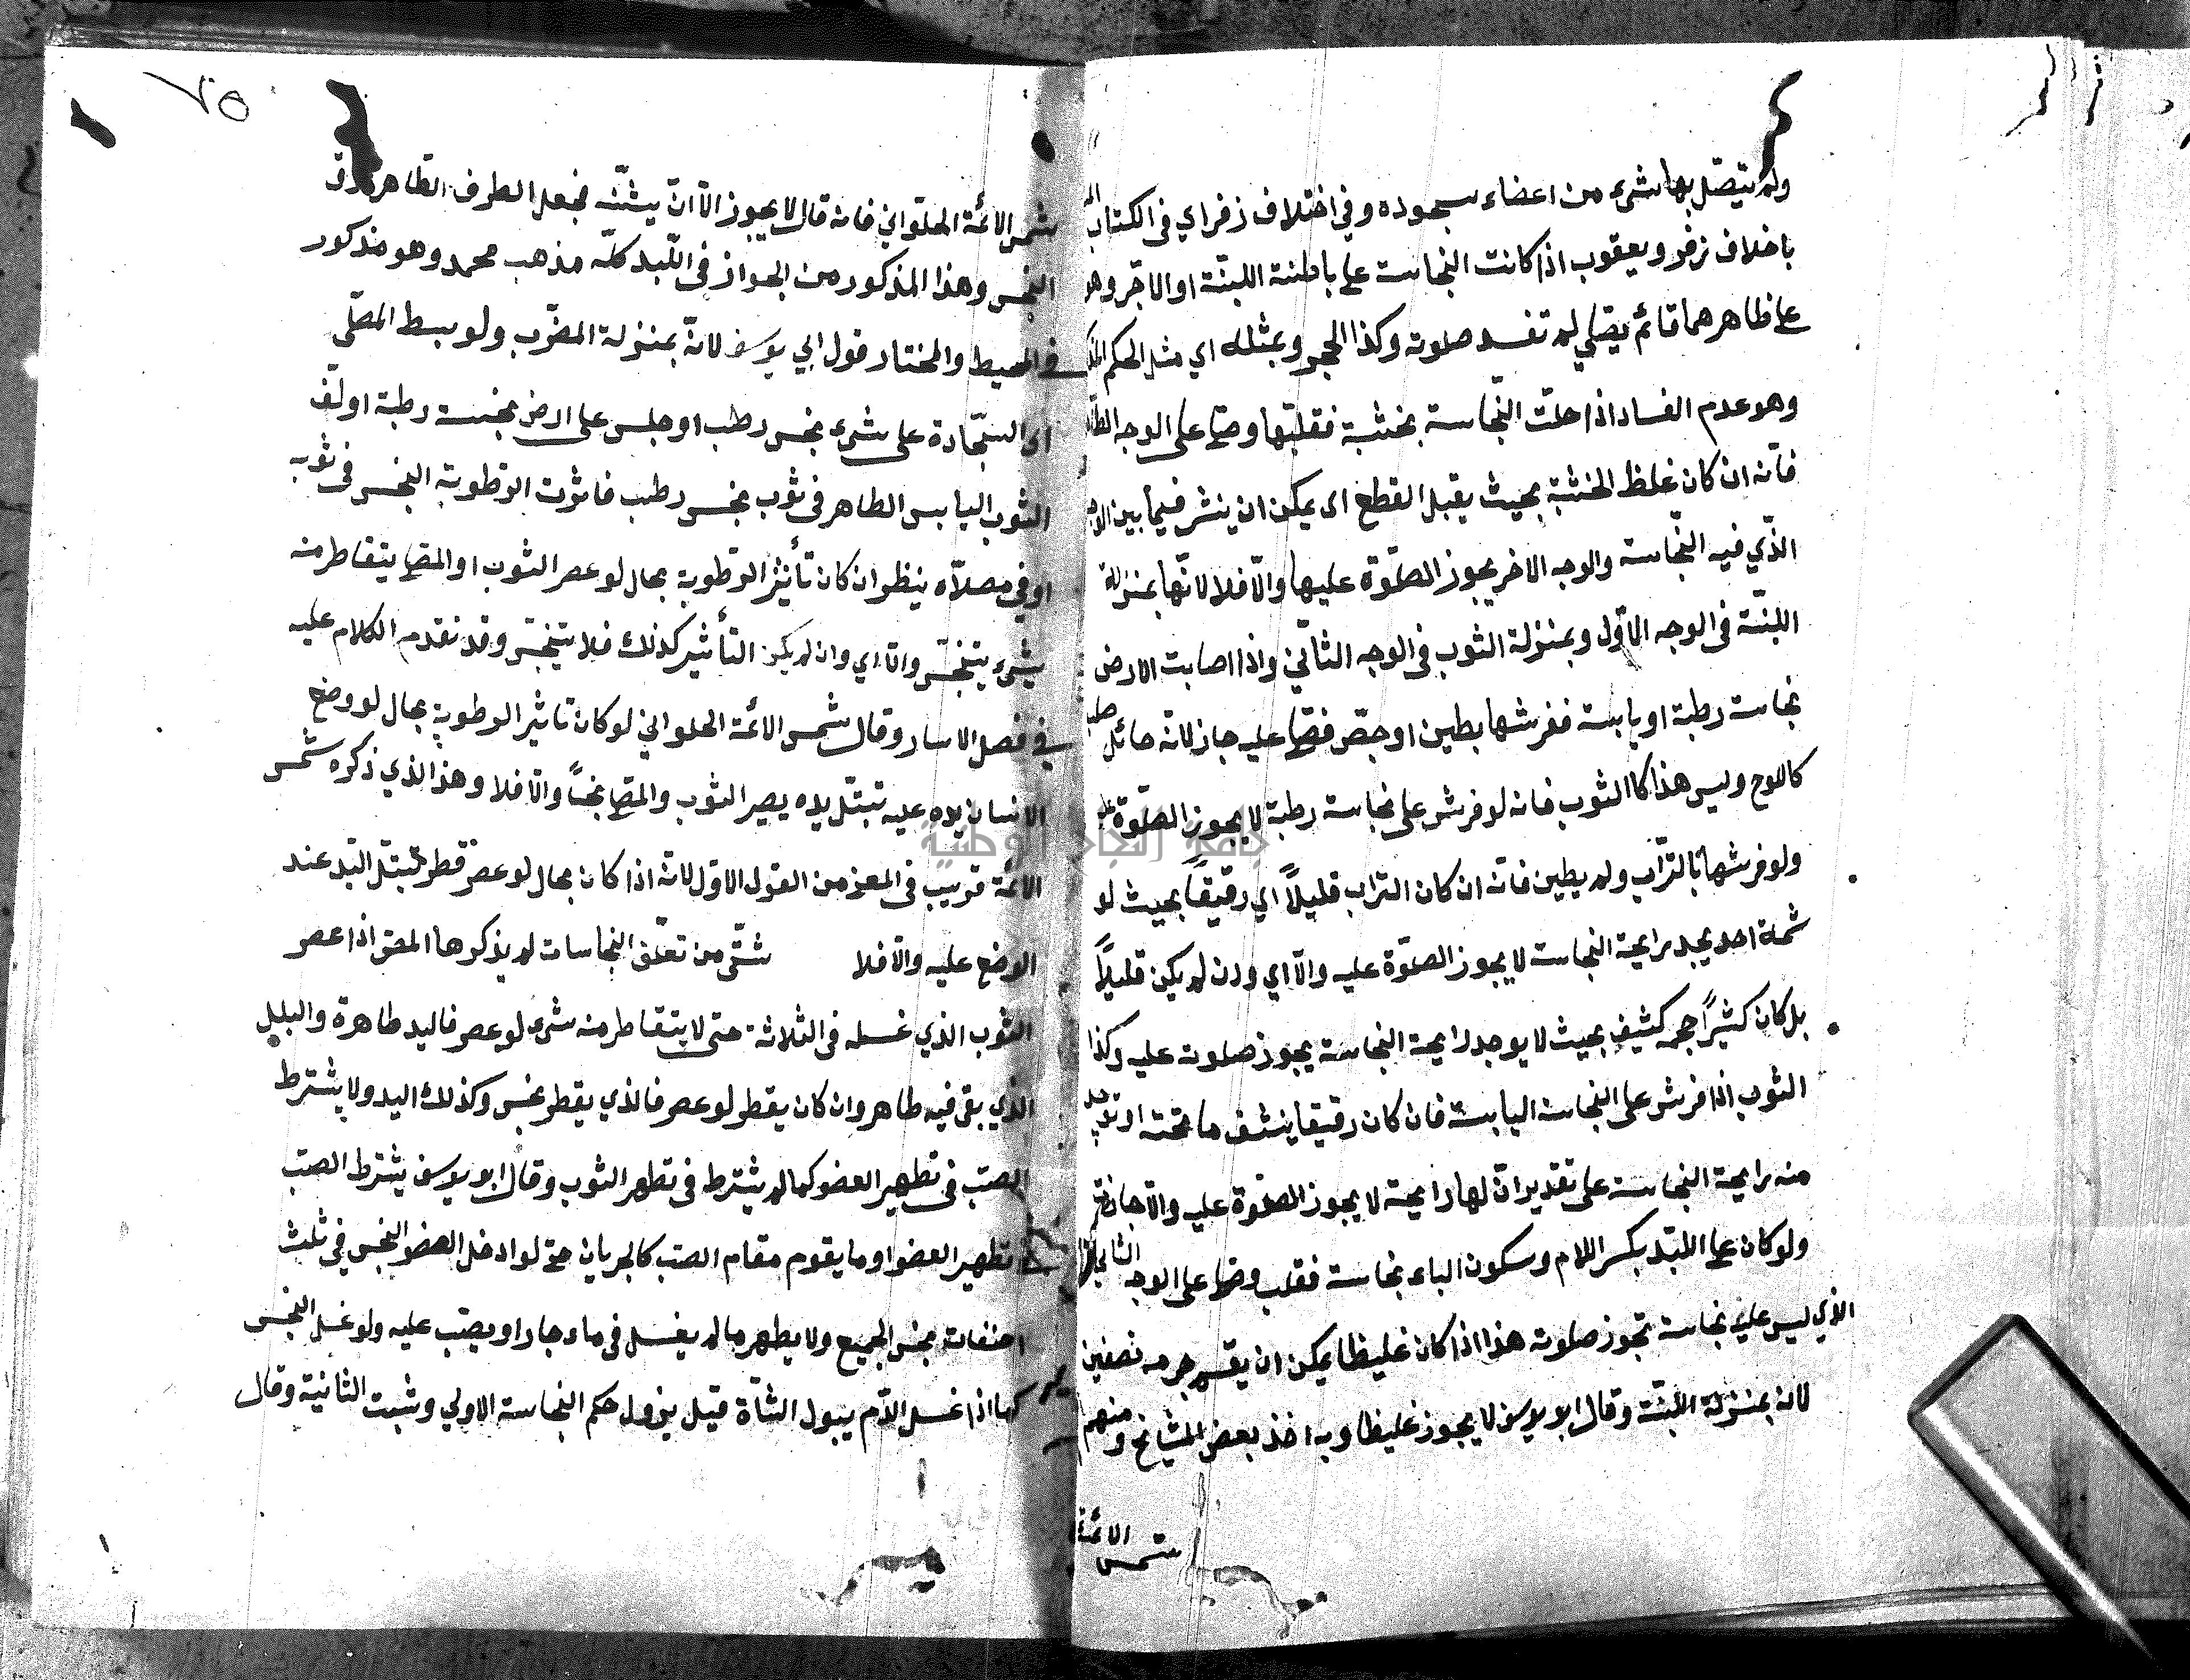 ولم يتصل بها شيء من اعضاء سجوده وفي اختلاف زفر اي في الكتاب
باختلاف زفر ويعقوب اذا كانت النجاسة على باطنة اللبنة او الآجر وهو
على ظاهرهما قائم يصلي لم تفسد صلوته وكذا الحجر وبمثله اي مثل الحكم
وهو عدم الفساد اذا حلت النجاسة بخشبة فقلبها وصلى على الوجه الطاهر
فانه ان كان غلظ الخشبة بحيث يقبل القطع اى يمكن ان ينشر فيما بين الوجه
الذي فيه النجاسة والوجه الاخر يجوز الصلوة عليها والا فلا لانها بمنزلة
اللبنة فى الوجه الاول وبمنزلة الثوب فى الوجه الثاني واذا اصابت الارض
نجاسة رطبة او يابسة ففرشها بطين او جص فصلى عليه جاز لانه حائل صلب
كاللوح وليس هذا كاالثوب فانه لو فرش على نجاسة رطبة لا يجوز الصلوة عليه
ولو فرشها بالتراب ولم يطين فانه ان كان التراب قليلاً اي رقيقاً بحيث لو
شمه احد يجد رايحة النجاسة لا يجوز الصلوة عليه والا اي وان لم يكن قليلاً
بل كان كثيراً حجمه كثيف بحيث لا يوجد رايحة النجاسة يجوز صلوته عليه وكذا
الثوب اذا فرش على النجاسة اليابسة فان كان رقيقا ينشف ما تحته او توجد
منه رايحة النجاسة على تقدير ان لها رايحة لا يجوز الصلوة عليه والا جازت
ولو كان على اللبد بكسر اللام وسكون الباء نجاسة فقلب وصلى على الوجه الثاني
الذي ليس عليه نجاسة تجوز صلوته هذا اذا كان غليظا يمكن ان يقسم جرمه نصفين
لانه بمنزلة اللبنة وقال ابو يوسف لا يجوز غليظا وبه اخذ بعض المشايخ ومنهم
شمس الائمة
٧٥
شمس الائمة الحلواني فانه قال لا يجوز الا ان يثنه فجعل الطرف الطاهر فوق
النجس وهذا المذكور من الجواز فى اللبد كله مذهب محمد وهو مذكور
في المحيط والمختار قول ابي يوسف لانه بمنزلة المضرب ولو بسط المصلى
اى السجادة على شيء نجس رطب او جلس على ارض نجسة رطبة او لف
الثوب اليابس الطاهر فى ثوب نجس رطب فاثرت الرطوبة النجس فى ثوبه
او فى مصلاه ينظر ان كان تأثير الرطوبة بحال لو عصر الثوب او المصلى يتقاطر منه
شيء يتنجس والا اي وان لم يكن التأثير كذلك فلا يتنجس وقد تقدم الكلام عليه
في فصل الاسار وقال شمس الائمة الحلواني لو كان تاثير الرطوبة بحال لو وضع
الانسان يده عليه تبتل يده يصير الثوب والمصلى نجساً والا فلا وهذا الذي ذكره شمس
الائمة قريب فى المعنى من القول الاول لانه اذا كان بحال لو عصر قطر تبتل اليد عند
الوضع عليه والا فلا شتى من تعلق النجاسات لم يذكرها المصنف اذا عصر
الثوب الذي غسله فى الثلاثة حتى لا يتقاطر منه شيء لو عصر فاليد طاهرة والبلل
الذي بقى فيه طاهر وان كان يقطر لو عصر فالذي يقطر نجس وكذلك اليد ولا يشترط
الصب فى تطهير العضو كما لم يشترط فى تطهر الثوب وقال ابو يوسف يشترط الصب
في تطهير العضو او ما يقوم مقام الصب كالجريان حتى لو ادخل العضو النجس في ثلث
نجس الجميع ولا يطهر ما لم يغسل فى ماء جار او يصب عليه ولو غسل النجس
كما اذا غسل الدم ببول الشاة قيل يزول حكم النجاسة الاولي وثبت الثانية وقال
جامعة النجاح الوطنية